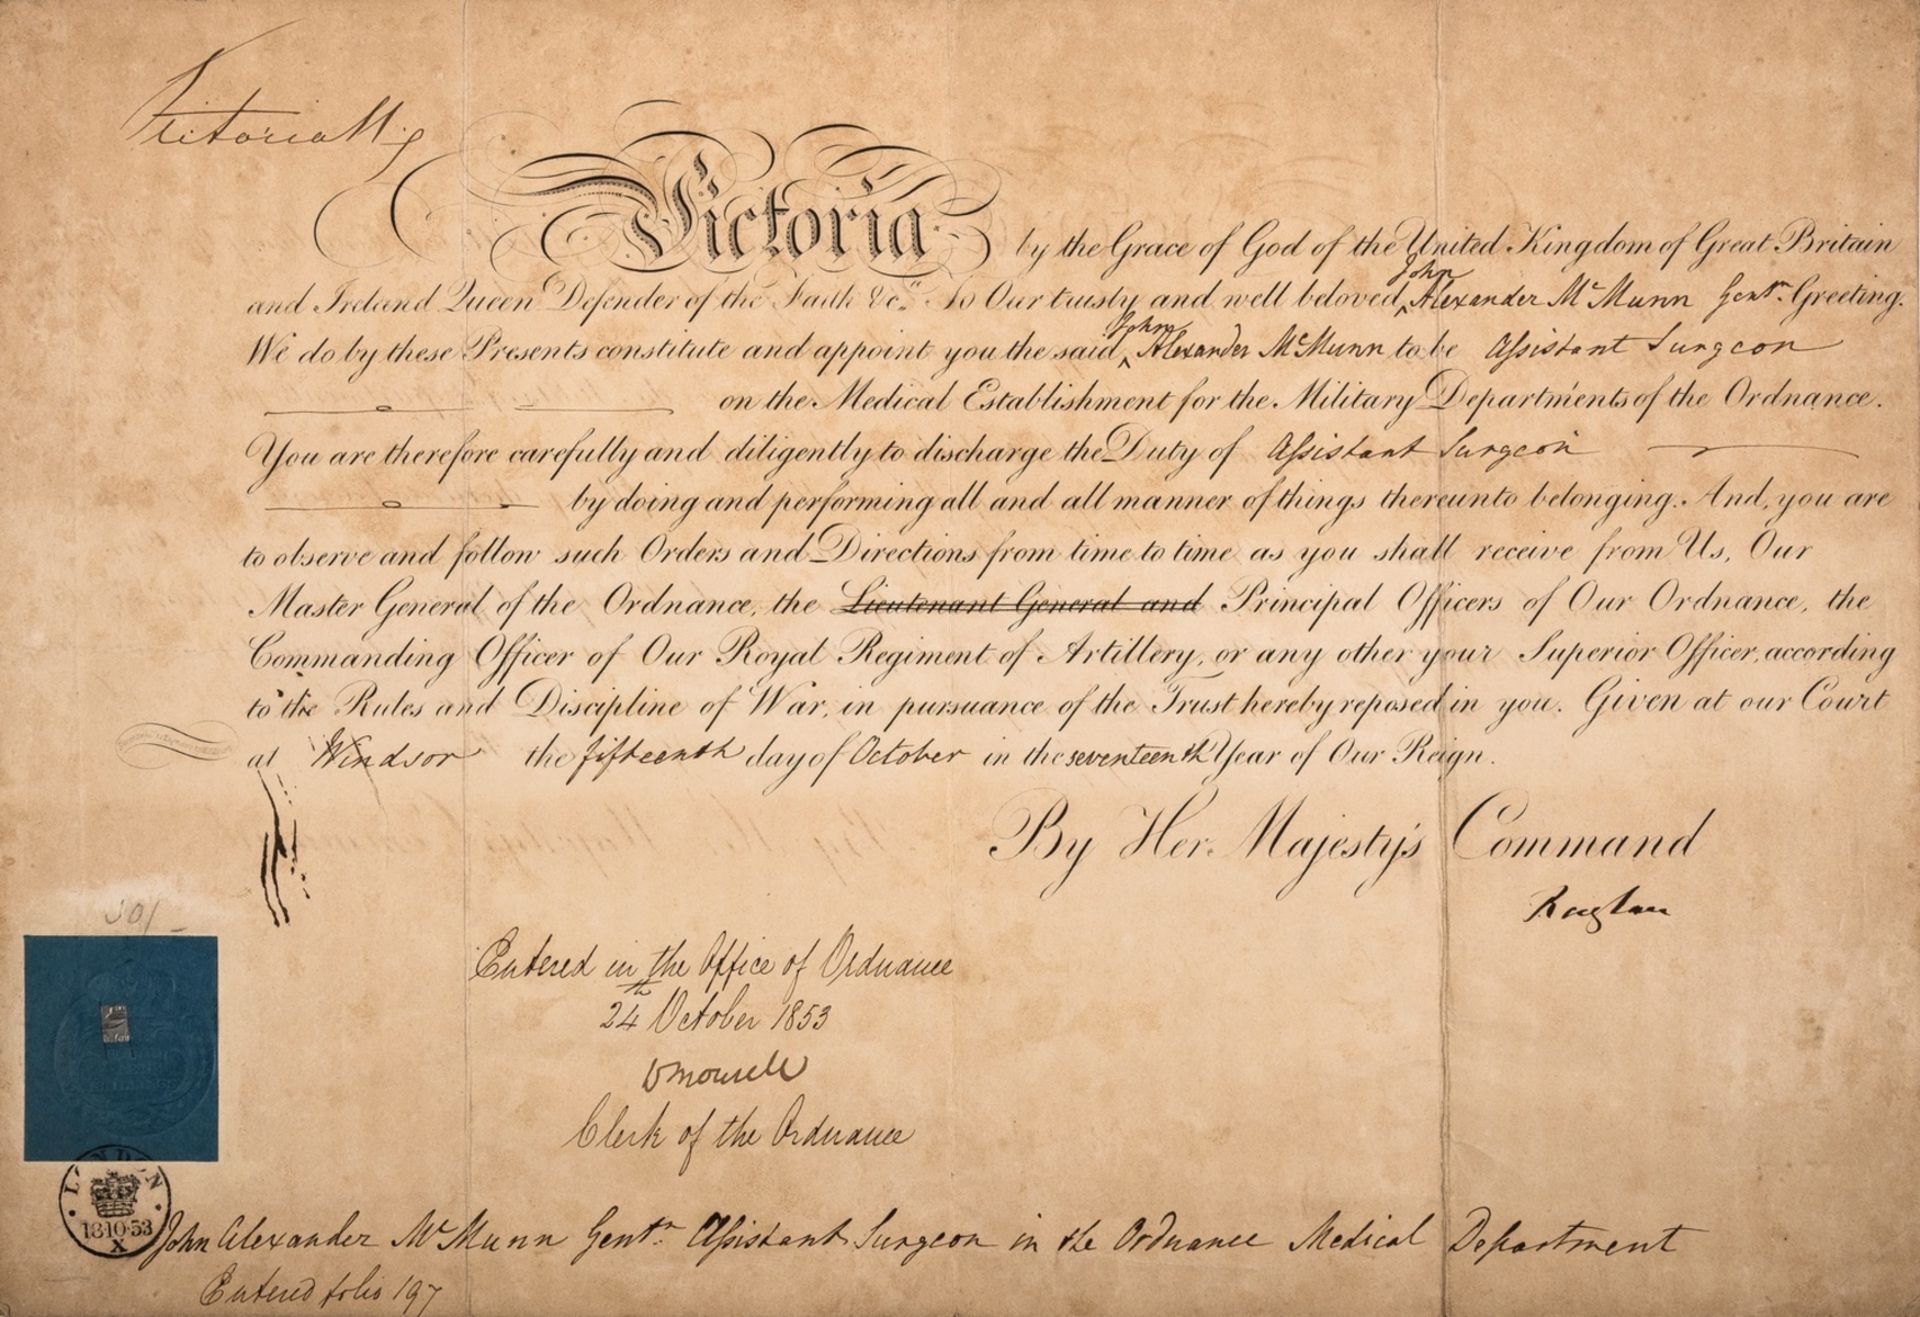 Victoria R
Victoria by the Grace of God of the United Kingdom of Great Britain
and Ireland Queen Defender of the Faith &c.ª To Our trusty and well beloved ^John Alexander McMunn Gentn. Greeting.
We do by these Presents constitute and appoint you the said ^John Alexander McMunn to be Assistant Surgeon
on the Medical Establishment for the Military Departments of the Ordnance.
You are therefore carefully and diligently to discharge the Duty of Assistant Surgeon
by doing and performing all and all manner of things thereunto belonging. And, you are
to observe and follow such Orders and Directions from time to time as you shall receive from Us, Our
Master General of the Ordnance, the Lieutenant General and Principal Officers of Our Ordnance, the
Commanding Officer of Our Royal Regiment of Artillery, or any other your Superior Officer, according
to the Rules and Discipline of War, in pursuance of the Trust hereby reposed in you. Given at our Court
at Windsor the fifteenth day of October in the seventeenth Year of Our Reign.
By Her Majesty's Command
Raglan
Entered in the Office of Ordnance
24th October 1853
Clerk of the Ordnance
LONDON
18·10·53
X
John Alexander McMunn Gentn. Assistant Surgeon in the Ordnance Medical Department
Entered folio 197